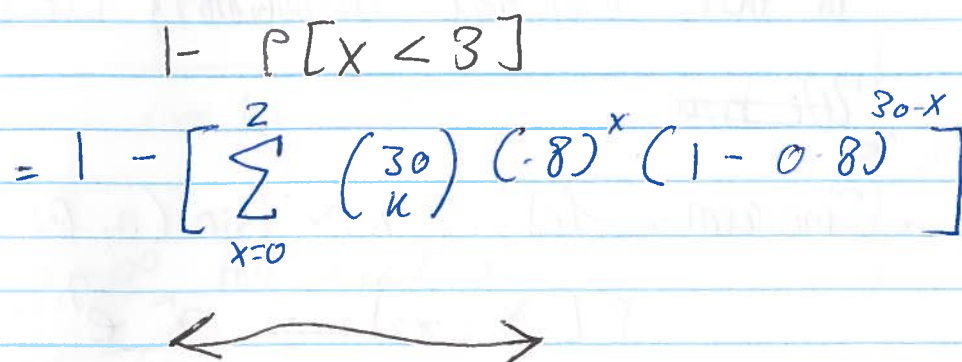 1 - P[X < 3]
= 1 - [∑_{x=0}^{2} (30 K) (.8)^x (1 - 0.8)^{30-x}]